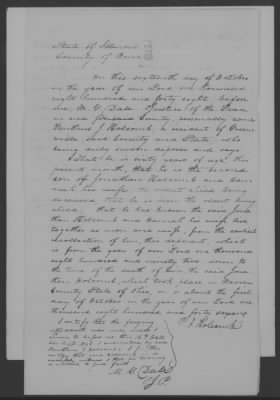 State of Illinois
County of Bond
On this sixteenth day of October
in the year of our Lord one thousand
eight hundred and forty eight, before
me, M. G. Dale Justice of the Peace
in and foresaid County, personally came
J. Holcomb, a resident of Green
ville, said County and State, who
being duly sworn deposes and says
That he is sixty years of age this
present month, that he is the second
son of Jonathan Holcomb and Han
nah his wife, the oldest child being
deceased, that he is now the oldest living
child; that he has known the said Jona
than Holcomb and Hannah his wife live
together as man and wife, from the earliest
recollection of him this deponent, which
is from the year of our Lord one thousand
eight hundred and ninety two, down to
the time of the death of him, the said Jona
than Holcomb, which took place in Warren
County State of Ohio, on or about the first
day of October in the year of our Lord one
thousand eight hundred and forty
J. Holcomb
I certify that the foregoing
affidavit was
before me this 16th Day
M. G. Dale
J.P.